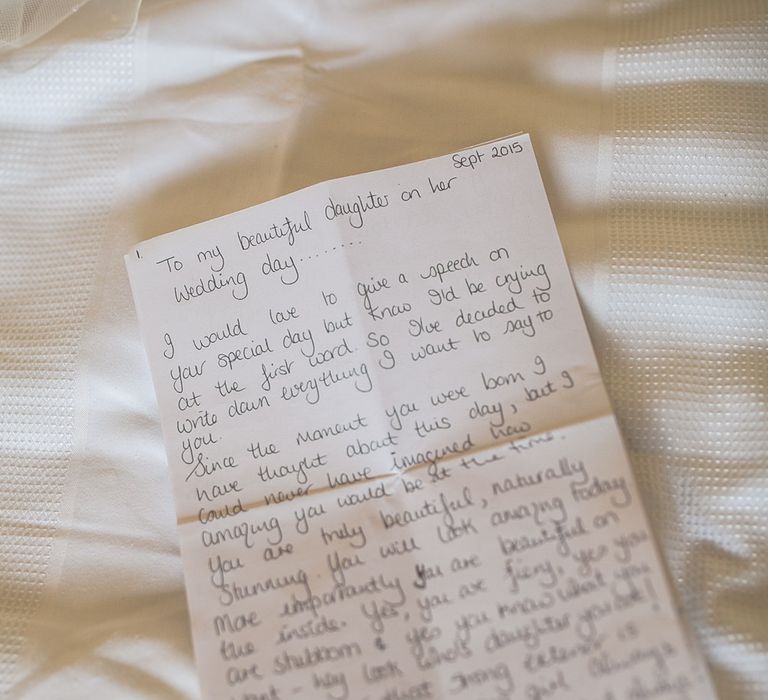 Sept 2015
1.
To my beautiful daughter on her
Wedding day........
I would love to give a speech on
your special day but know I'd be crying
at the first word. So I've decided to
write down everything I want to say to
you.
Since the moment you were born I
have thought about this day, but I
could never have imagined how
amazing you would be at the time.
You are truly beautiful, naturally
stunning. You will look amazing today
More importantly you are beautiful on
the inside. Yes, you are fiery, yes you
are stubborn & yes you know what you
want - hey look who's daughter you are!
that strong exterior is
girl always